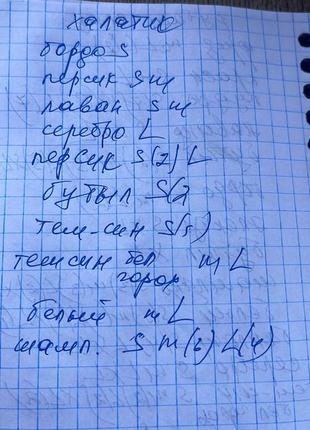 халатик
бордо S
персик S m
лаван S m
серебро L
персик S(2) L
бутыл S(2
тем-син S(5)
темсин бел горох m L
белый m L
шамп. S m(6) L(4)